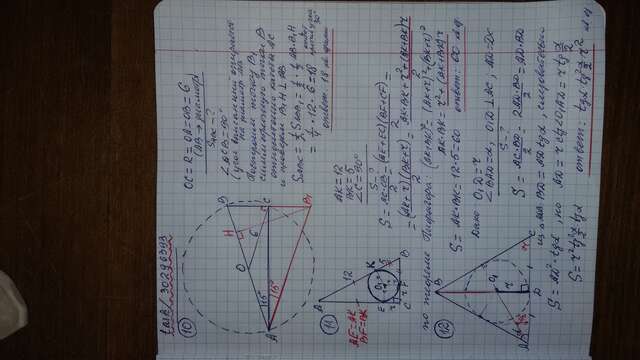 task/30296393
10
OC = R = OA = OB = 6
(AB → диаметр)
S_ABC - ?
∠ACB = 90°
(угол вписанный опирается
на диаметр AB
Построим точку B₁
симметричную точки B
относительно катета AC
и проведем B₁H ⊥ AB
S_ABC = 1/2 S_ABB₁ = 1/2 · 1/2 AB·B₁H
= 1/4 · 12 · 6 = 18
катет против угла 30°
ответ: 18
B
H
O
6
A
15°
15°
C
B₁
11
A
12
AE = AK
BF = BK
K
E
O
5
r
C
r
F
B
AK = 12
BK = 5
∠C = 90°
S - ?
S = AC·CB/2 = (AE+EC)(BF+CF)/2 =
= (AK+r)(BK+r)/2 = AK·BK + r² + (AK+BK)r/2
по теореме Пифагора: (AK+BK)² = (AK+r)² + (BK+r)²
AK·BK = r² + (AK+BK)r
S = AK·BK = 12·5 = 60
ответ: 60
12
B
O₁
r
A
D
C
Дано O₁D = r
∠BAD = α, O₁D ⊥ AC, AD = DC
S - ?
S = AC·BD/2 = 2AD·BD/2 = AD·BD
из ABD: BD = AD tgα, следовательно
S = AD²·tgα, но AD = r ctg∠O₁AD = r tg α/2
S = r² tg² α/2 tgα
ответ: tgα tg² α/2 r²